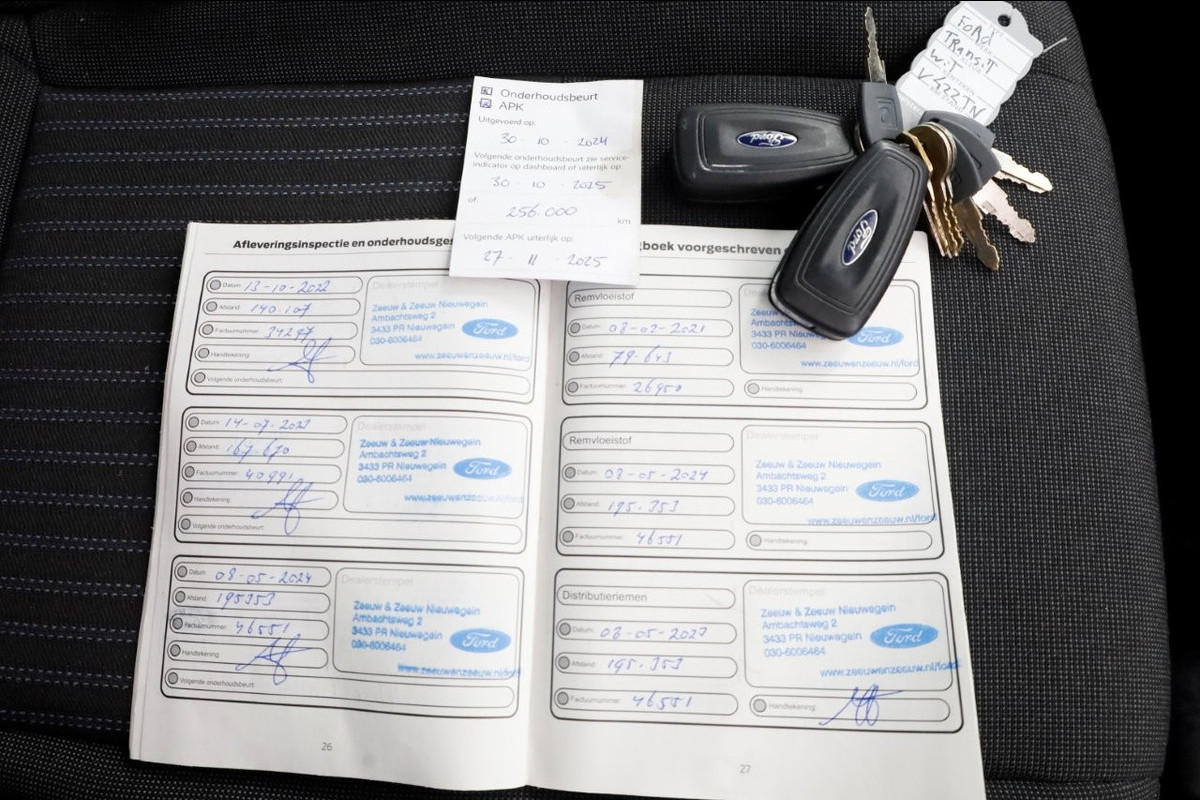 Onderhoudsbeurt
APK
Uitgevoerd op:
30 - 10 - 2024
Volgende onderhoudsbeurt zie service-
indicator op dashboard of uiterlijk op:
30 - 10 - 2025
of:
256.000
km
Volgende APK uiterlijk op:
27 - 11 - 2025
Ford
Ford
FORD
TRANSIT
WIT
Afleveringsinspectie en onderhoudsges
Datum: 13-10-2022
Afstand: 140.107
Factuurnummer:
Handtekening:
Volgende onderhoudsbeurt:
Dealerstempel
Zeeuw & Zeeuw Nieuwegein
Ambachtsweg 2
3433 PR Nieuwegein
030-6006464
Ford
www.zeeuwenzeeuw.nl/ford
Datum: 14-07-2023
Afstand: 167.670
Factuurnummer: 40991
Handtekening:
Volgende onderhoudsbeurt:
Dealerstempel
Zeeuw & Zeeuw Nieuwegein
Ambachtsweg 2
3433 PR Nieuwegein
030-6006464
Ford
www.zeeuwenzeeuw.nl/ford
Datum: 08-05-2024
Afstand: 195353
Factuurnummer: 46551
Handtekening:
Volgende onderhoudsbeurt:
Dealerstempel
Zeeuw & Zeeuw Nieuwegein
Ambachtsweg 2
3433 PR Nieuwegein
030-6006464
Ford
www.zeeuwenzeeuw.nl/ford
26
gboek voorgeschreven
Remvloeistof
Datum: 08-02-2021
Afstand:
Factuurnummer: 26950
Zeeuw
Ambachts
3433 PR Nieuwegein
030-6006464
www.zeeuwenzeeuw.nl/ford
Handtekening:
Remvloeistof
Datum: 08-05-2024
Afstand: 195.353
Factuurnummer: 46551
Dealerstempel
Zeeuw & Zeeuw Nieuwegein
Ambachtsweg 2
3433 PR Nieuwegein
030-6006464
Ford
www.zeeuwenzeeuw.nl/ford
Handtekening:
Distributieriemen
Datum: 08-05-2023
Afstand: 195.353
Factuurnummer: 46551
Dealerstempel
Zeeuw & Zeeuw Nieuwegein
Ambachtsweg 2
3433 PR Nieuwegein
030-6006464
Ford
www.zeeuwenzeeuw.nl/ford
Handtekening:
27